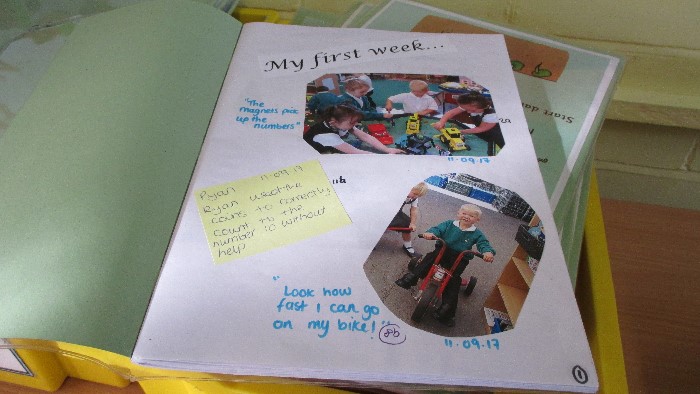 My first week...
"The
magnets pick
up the
numbers"
11-09-17
Ryan 11-09-17
Ryan used the
coins to correctly
count to the
number 10 without
help
"Look how
fast I can go
on my bike!"
11-09-17
1
Start da